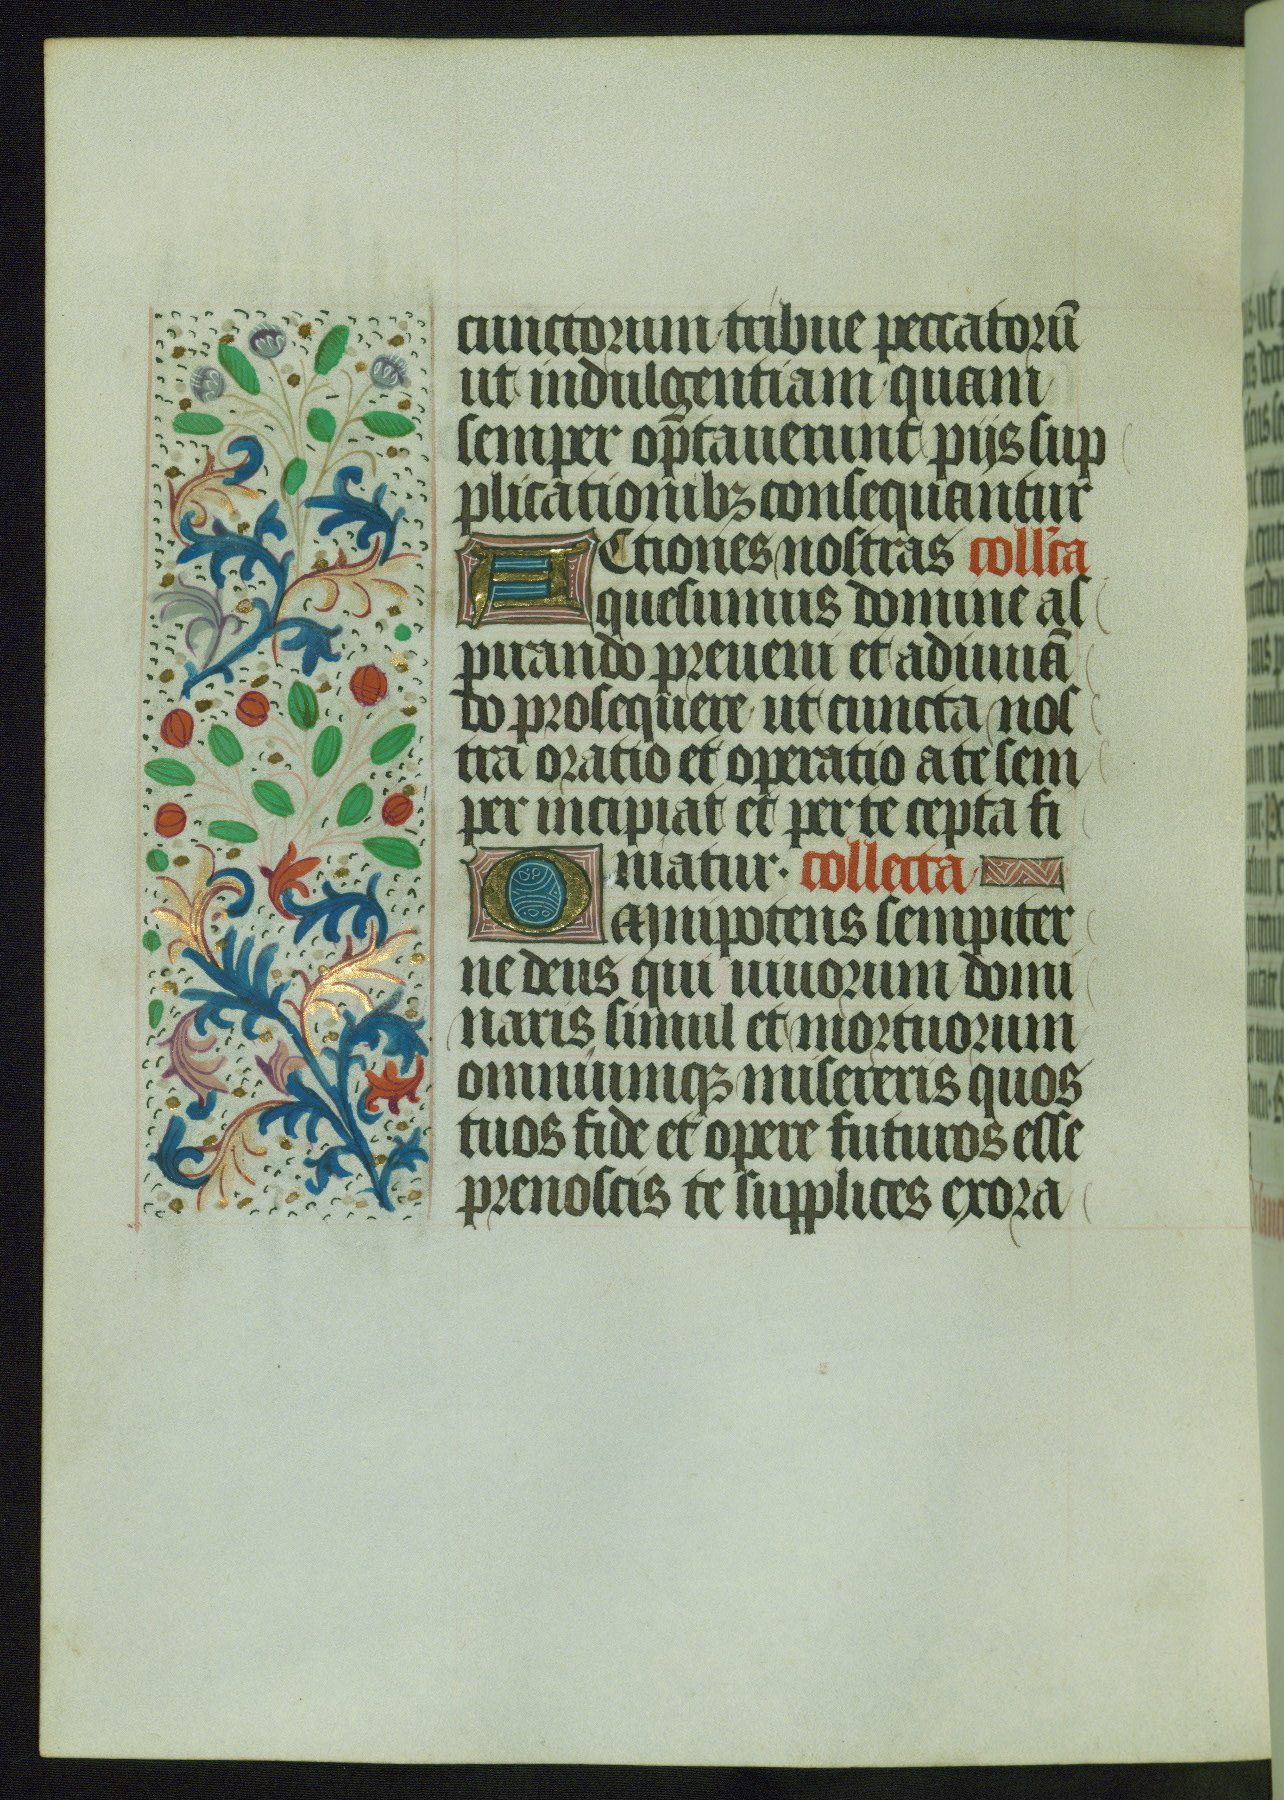 cunctorum tribue peccatorū
ut indulgentiam quam
semper op̄tauerunt pijs sup
plicationibꝫ consequantur
ACtiones nostras coll̄ca
quesumus domine as
pirando preueni et adiuuā
do prosequere ut cuncta nos
tra oratio et operatio a te sem
per incipiat et per te cepta fi
niatur · collecta
OMnipotens sempiter
ne deus qui uiuorum domi
naris simul et mortuorum
omniumqꝫ misereris quos
tuos fide et opere futuros esse
prenoscis te supplices exora